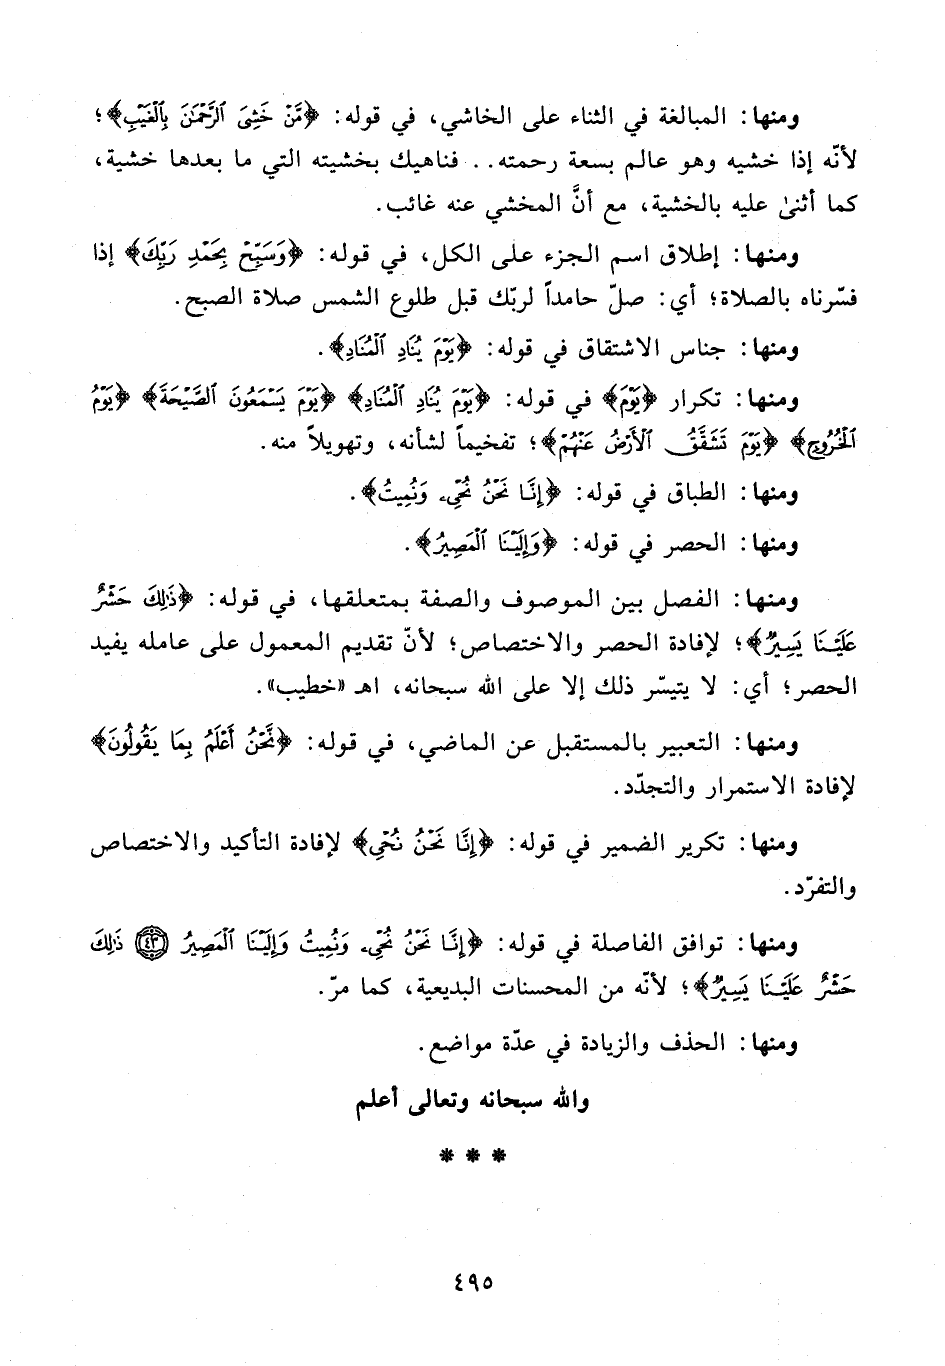 ومنها: المبالغة في الثناء على الخاشي، في قوله: ﴿مَّنْ خَشِيَ ٱلرَّحْمَٰنَ بِٱلْغَيْبِ﴾؛
لأنّه إذا خشيه وهو عالم بسعة رحمته.. فناهيك بخشيته التي ما بعدها خشية،
كما أثنىٰ عليه بالخشية، مع أنَّ المخشي عنه غائب.
ومنها: إطلاق اسم الجزء على الكل، في قوله: ﴿وَسَبِّحْ بِحَمْدِ رَبِّكَ﴾ إذا
فسّرناه بالصلاة؛ أي: صلّ حامداً لربّك قبل طلوع الشمس صلاة الصبح.
ومنها: جناس الاشتقاق في قوله: ﴿يَوْمَ يُنَادِ ٱلْمُنَادِ﴾.
ومنها: تكرار ﴿يَوْمَ﴾ في قوله: ﴿يَوْمَ يُنَادِ ٱلْمُنَادِ﴾ ﴿يَوْمَ يَسْمَعُونَ ٱلصَّيْحَةَ﴾ ﴿يَوْمُ
ٱلْخُرُوجِ﴾ ﴿يَوْمَ تَشَقَّقُ ٱلْأَرْضُ عَنْهُمْ﴾؛ تفخيماً لشأنه، وتهويلاً منه.
ومنها: الطباق في قوله: ﴿إِنَّا نَحْنُ نُحْيِۦ وَنُمِيتُ﴾.
ومنها: الحصر في قوله: ﴿وَإِلَيْنَا ٱلْمَصِيرُ﴾.
ومنها: الفصل بين الموصوف والصفة بمتعلقها، في قوله: ﴿ذَٰلِكَ حَشْرٌ
عَلَيْنَا يَسِيرٌ﴾؛ لإفادة الحصر والاختصاص؛ لأنّ تقديم المعمول على عامله يفيد
الحصر؛ أي: لا يتيسّر ذلك إلا على الله سبحانه، اهـ «خطيب».
ومنها: التعبير بالمستقبل عن الماضي، في قوله: ﴿نَّحْنُ أَعْلَمُ بِمَا يَقُولُونَ﴾
لإفادة الاستمرار والتجدّد.
ومنها: تكرير الضمير في قوله: ﴿إِنَّا نَحْنُ نُحْيِ﴾ لإفادة التأكيد والاختصاص
والتفرّد.
ومنها: توافق الفاصلة في قوله: ﴿إِنَّا نَحْنُ نُحْيِۦ وَنُمِيتُ وَإِلَيْنَا ٱلْمَصِيرُ ٤٣ ذَٰلِكَ
حَشْرٌ عَلَيْنَا يَسِيرٌ﴾؛ لأنّه من المحسنات البديعية، كما مرّ.
ومنها: الحذف والزيادة في عدّة مواضع.
والله سبحانه وتعالى أعلم
* * *
٤٩٥